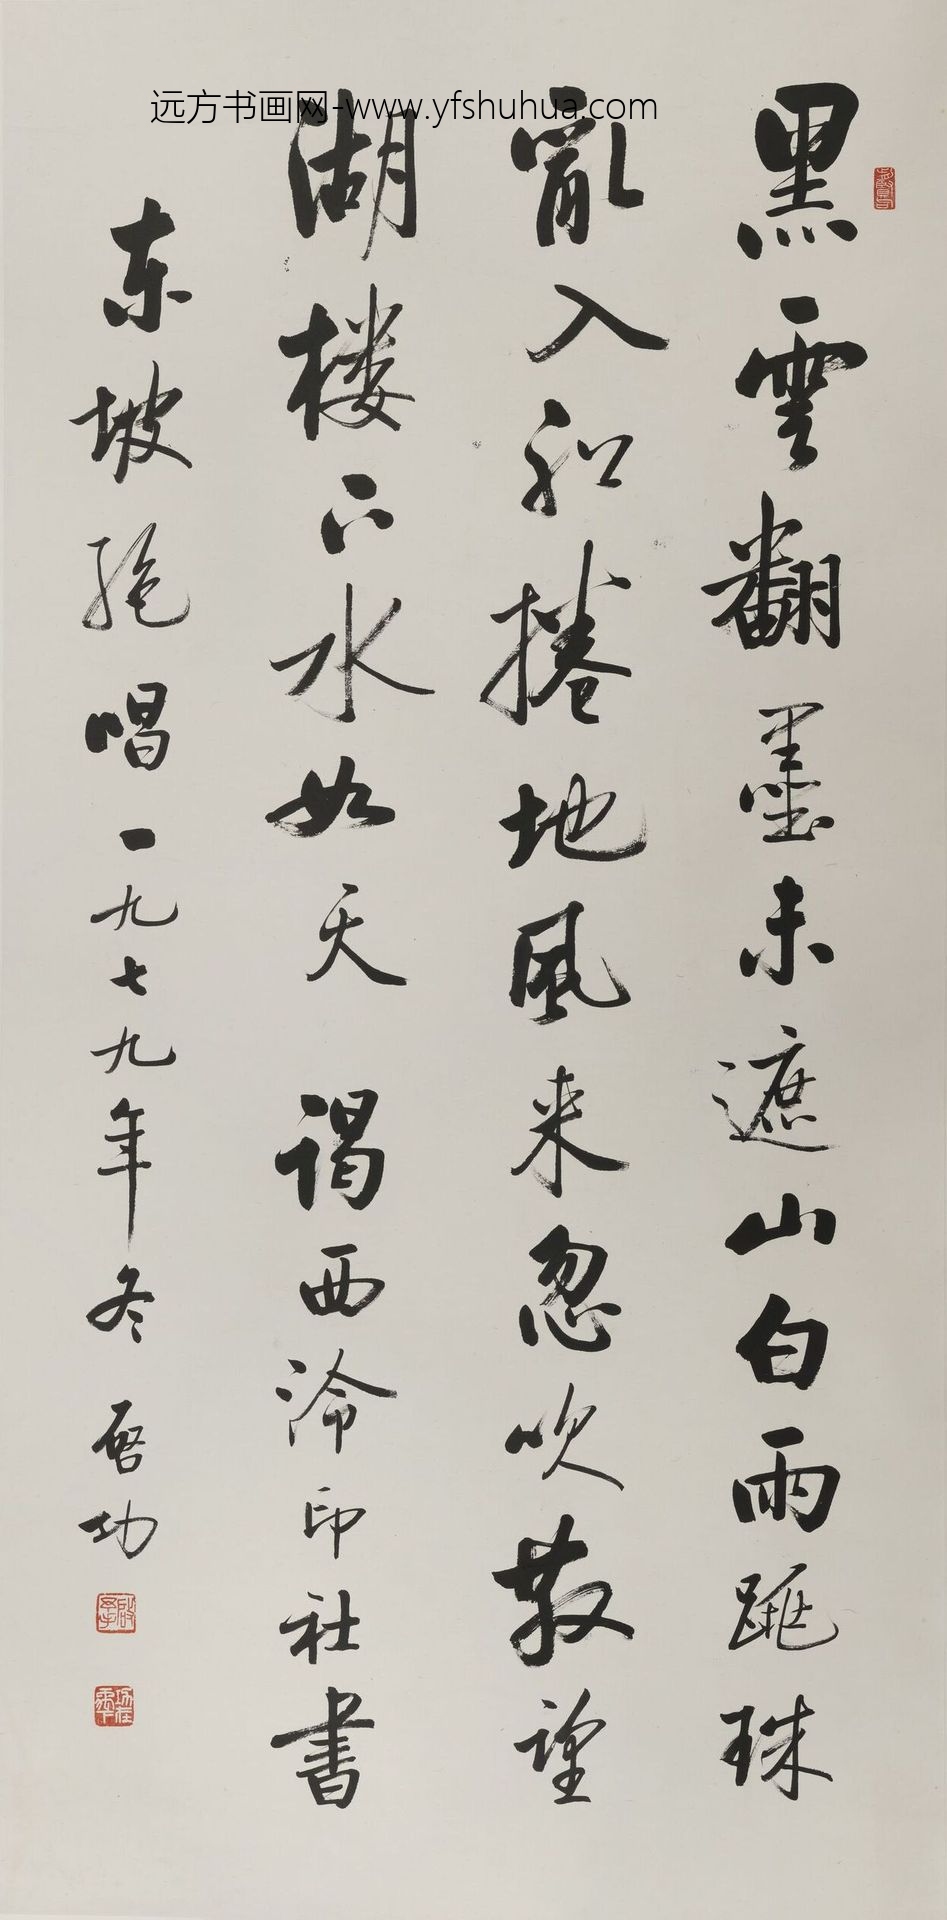 远方书画网-www.yfshuhua.com
黑雲翻墨未遮山白雨跳珠
亂入船捲地風来忽吹散望
湖楼下水如天 谒西泠印社書
东坡绝唱一九七九年冬 启功